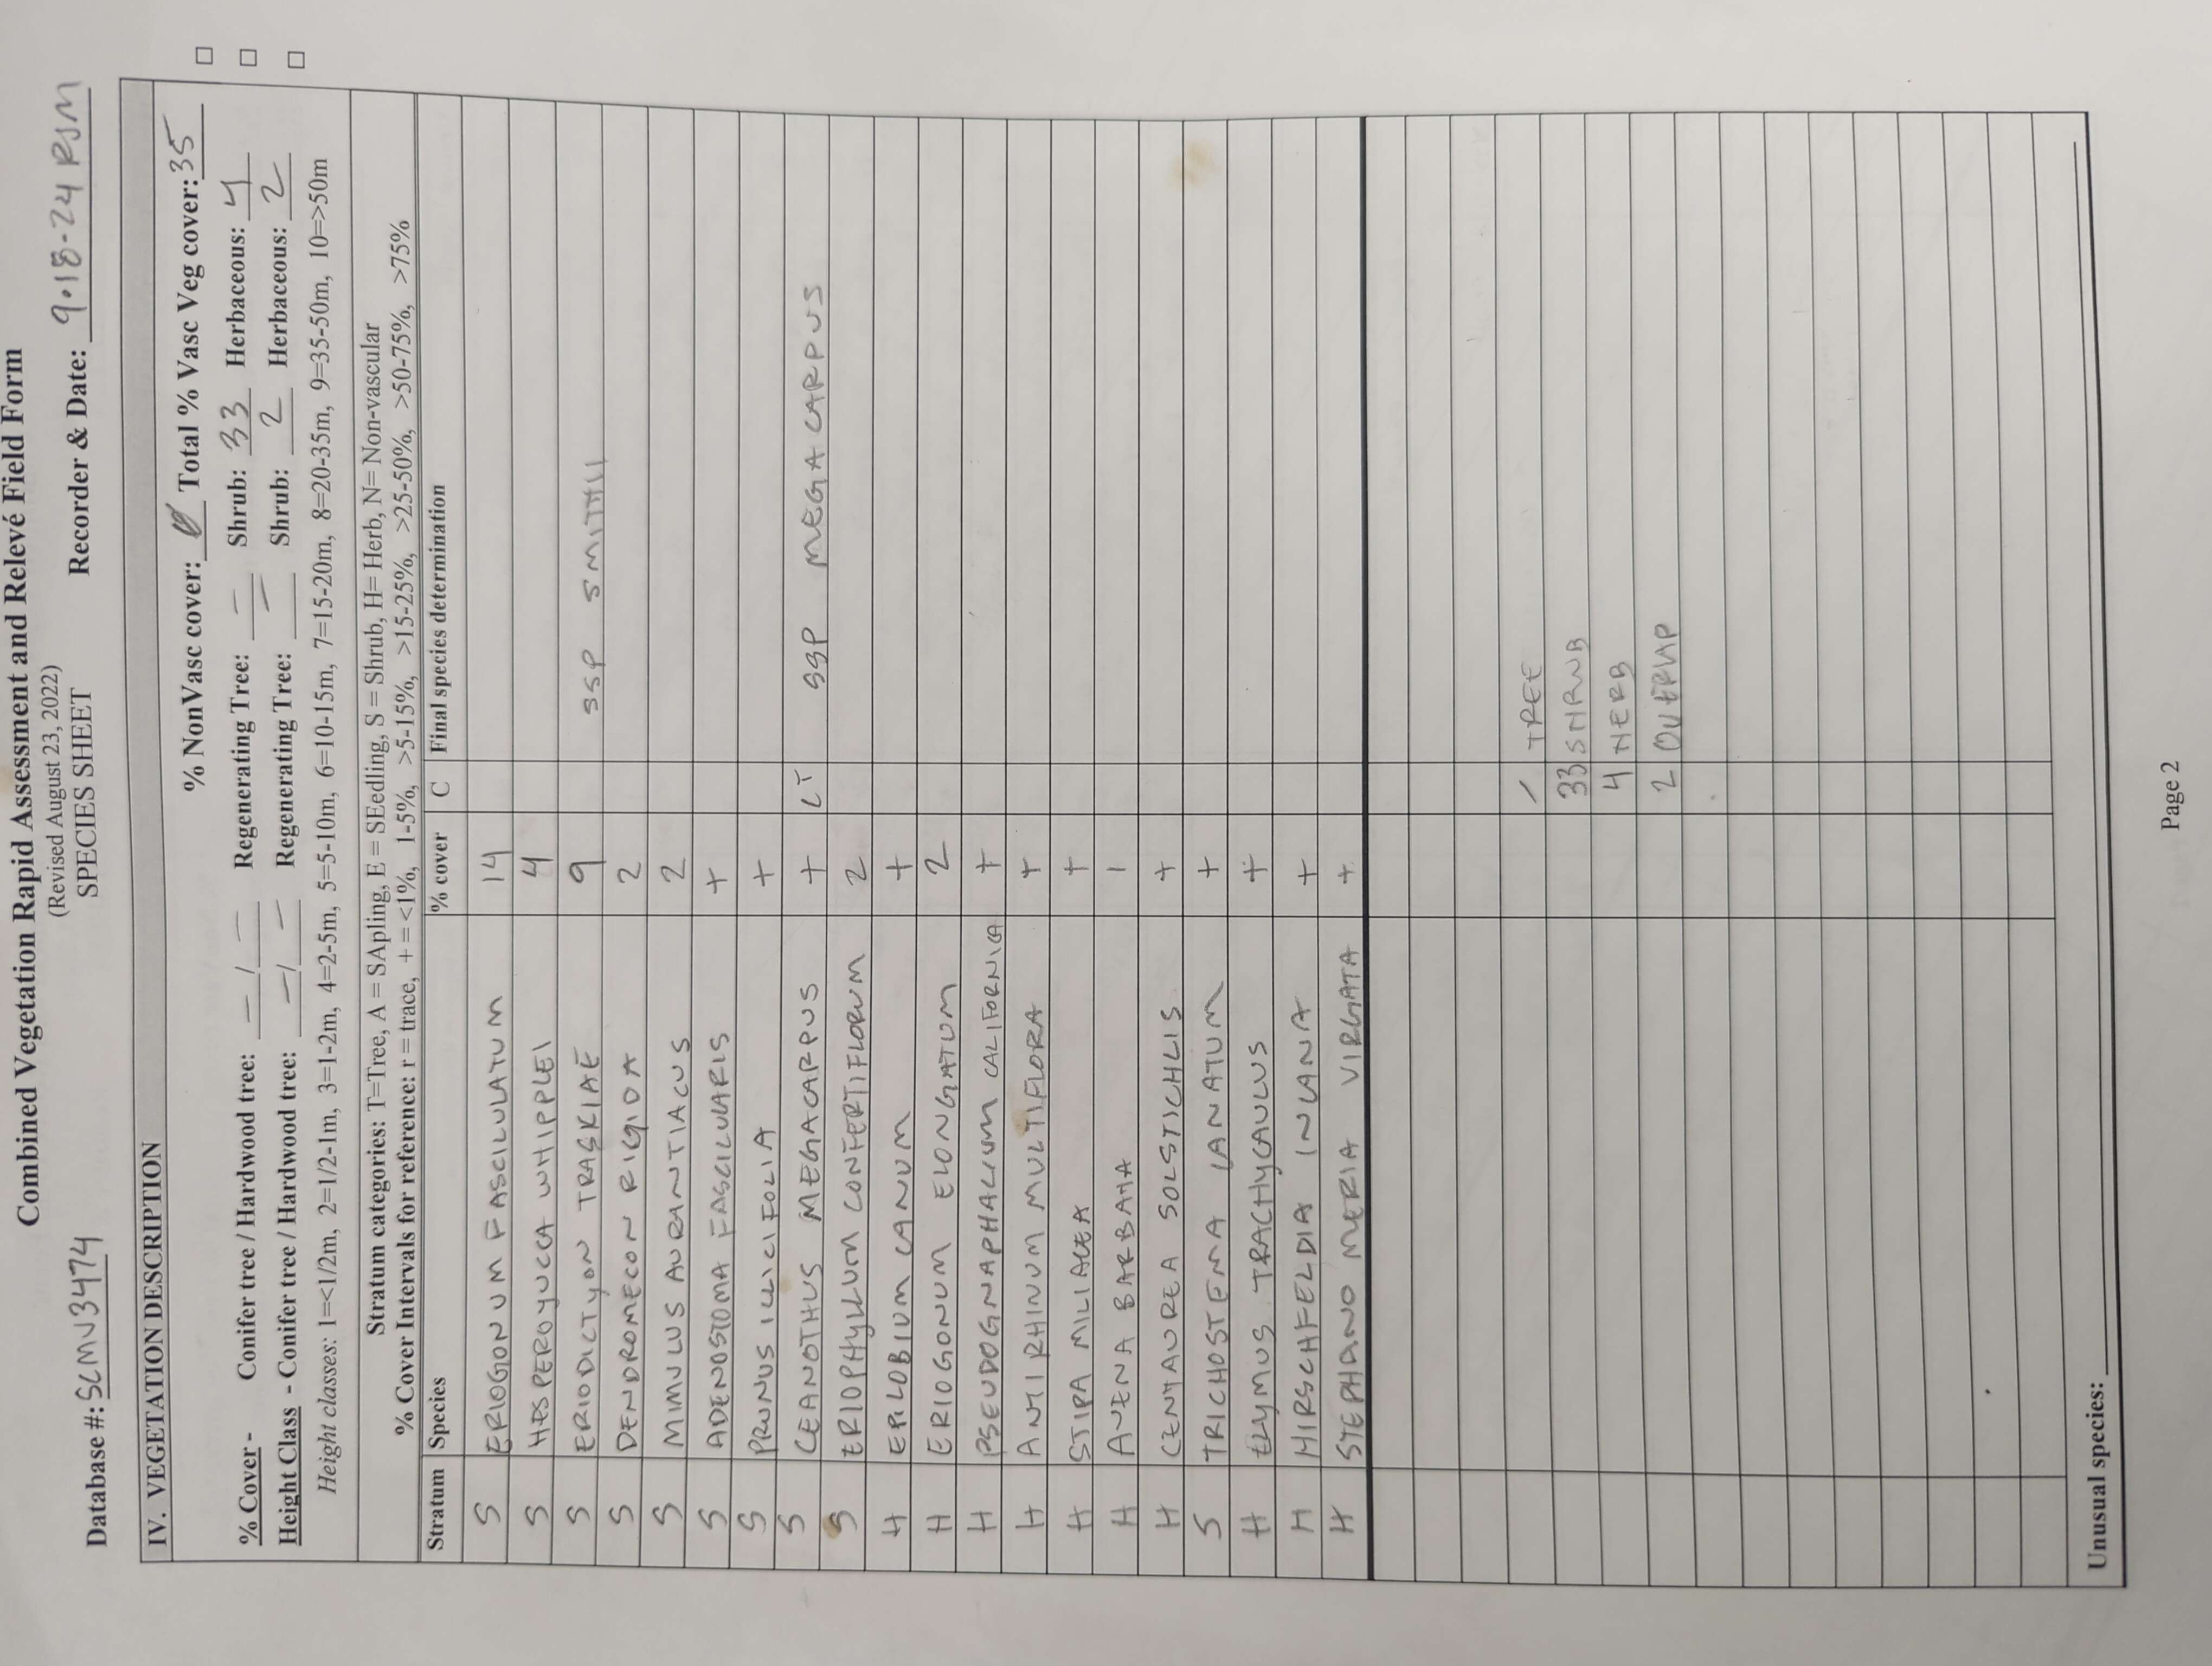 Combined Vegetation Rapid Assessment and Relevé Field Form
(Revised August 23, 2022)
SPECIES SHEET
Database #: SCMV3474 Recorder & Date: 9·18-24 RSM
IV. VEGETATION DESCRIPTION
% NonVasc cover: Ø Total % Vasc Veg cover: 35 □
% Cover - Conifer tree / Hardwood tree: — / — Regenerating Tree: — Shrub: 33 Herbaceous: 4 □
Height Class - Conifer tree / Hardwood tree: — / — Regenerating Tree: — Shrub: 2 Herbaceous: 2 □
Height classes: 1=<1/2m, 2=1/2-1m, 3=1-2m, 4=2-5m, 5=5-10m, 6=10-15m, 7=15-20m, 8=20-35m, 9=35-50m, 10=>50m
Stratum categories: T=Tree, A = SApling, E = SEedling, S = Shrub, H= Herb, N= Non-vascular
% Cover Intervals for reference: r = trace, + = <1%, 1-5%, >5-15%, >15-25%, >25-50%, >50-75%, >75%
Stratum Species % cover C Final species determination
S ERIOGONUM FASCILULATUM 14
S HESPEROYUCCA WHIPPLEI 4
S ERIODICTYON TRASKIAE 9 SSP SMITHII
S DENDROMECON RIGIDA 2
S MIMULUS AURANTIACUS 2
S ADENOSTOMA FASCILULARIS +
S PRUNUS ILLICIFOLIA +
S CEANOTHUS MEGACARPUS + LT SSP MEGACARPUS
S ERIOPHYLLUM CONFERTIFLORUM 2
H EPILOBIUM CANUM +
H ERIOGONUM ELONGATUM 2
H PSEUDOGNAPHALIUM CALIFORNICA +
H ANTIRHINUM MULTIFLORA +
H STIPA MILIACEA +
H AVENA BARBATA 1
H CENTAUREA SOLSTICHLIS +
S TRICHOSTEMA LANATUM +
H ELYMUS TRACHYCAULUS +
H HIRSCHFELDIA INCANA +
H STEPHANOMERIA VIRGATA +
/ TREE
33 SHRUB
4 HERB
2 OVERLAP
Unusual species:
Page 2